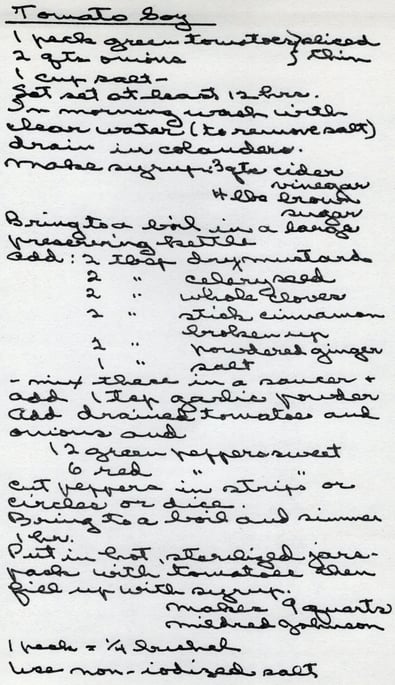 Tomato Soy
1 peck green tomatoes } sliced
2 qts onions } thin
1 cup salt -
Let set at least 12 hrs.
In morning wash with
clear water (to remove salt)
drain in colanders.
Make syrup: 3 qts cider
vinegar
4 lbs brown
sugar
Bring to a boil in a large
preserving kettle
add: 2 tbsp dry mustard
2 " celery seed
2 " whole cloves
2 " stick cinnamon
broken up
2 " powdered ginger
1 " salt
- mix these in a saucer +
add 1 tsp garlic powder
Add drained tomatoes and
onions and
12 green peppers sweet
6 red "  "
Cut peppers in strips or
circles or dice.
Bring to a boil and simmer
1 hr.
Put in hot, sterilized jars -
pack with tomatoes then
fill up with syrup.
makes 9 quarts
Mildred Johnson
1 peck = 1/4 bushel
Use non-iodized salt